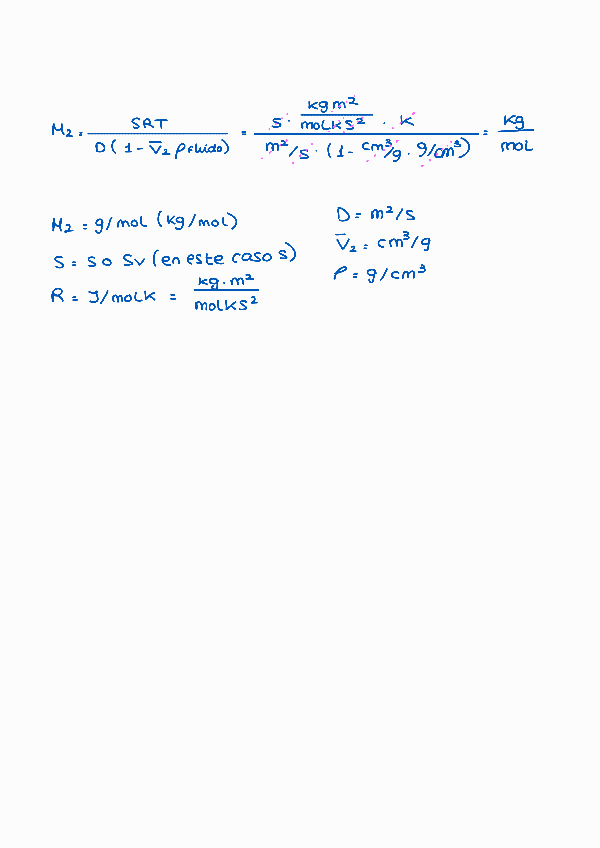 M₂ = SRT / D(1 - V̅₂ ρ fluido) = s · kg m² / molKs² · K / m²/s · (1 - cm³/g · g/cm³) = kg / mol
M₂ = g/mol (kg/mol)
S = s o Sv (en este caso s)
R = J/molK = kg·m² / molKs²
D = m²/s
V̅₂ = cm³/g
ρ = g/cm³